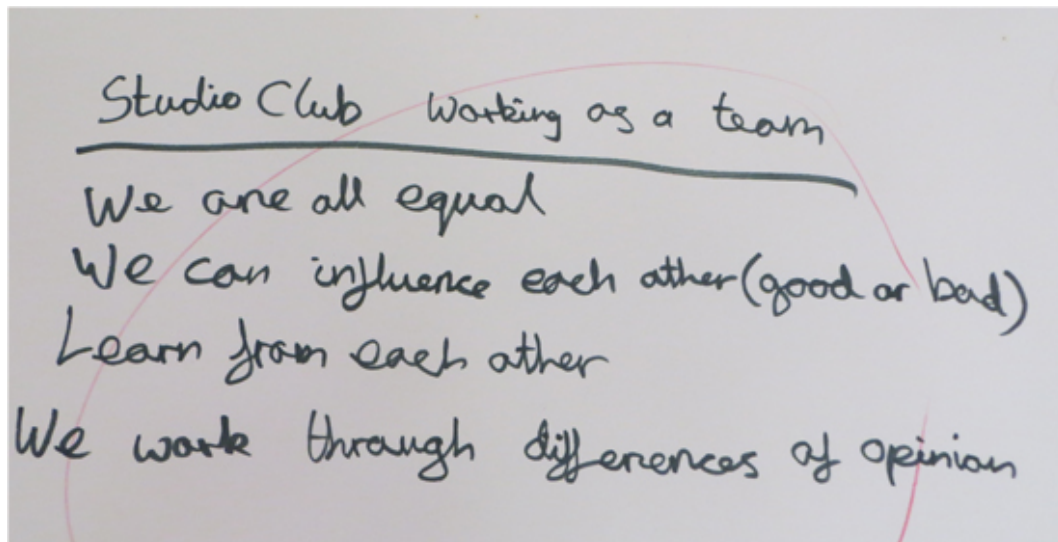 Studio Club working as a team
We are all equal
We can influence each other (good or bad)
Learn from each other
We work through differences of opinion